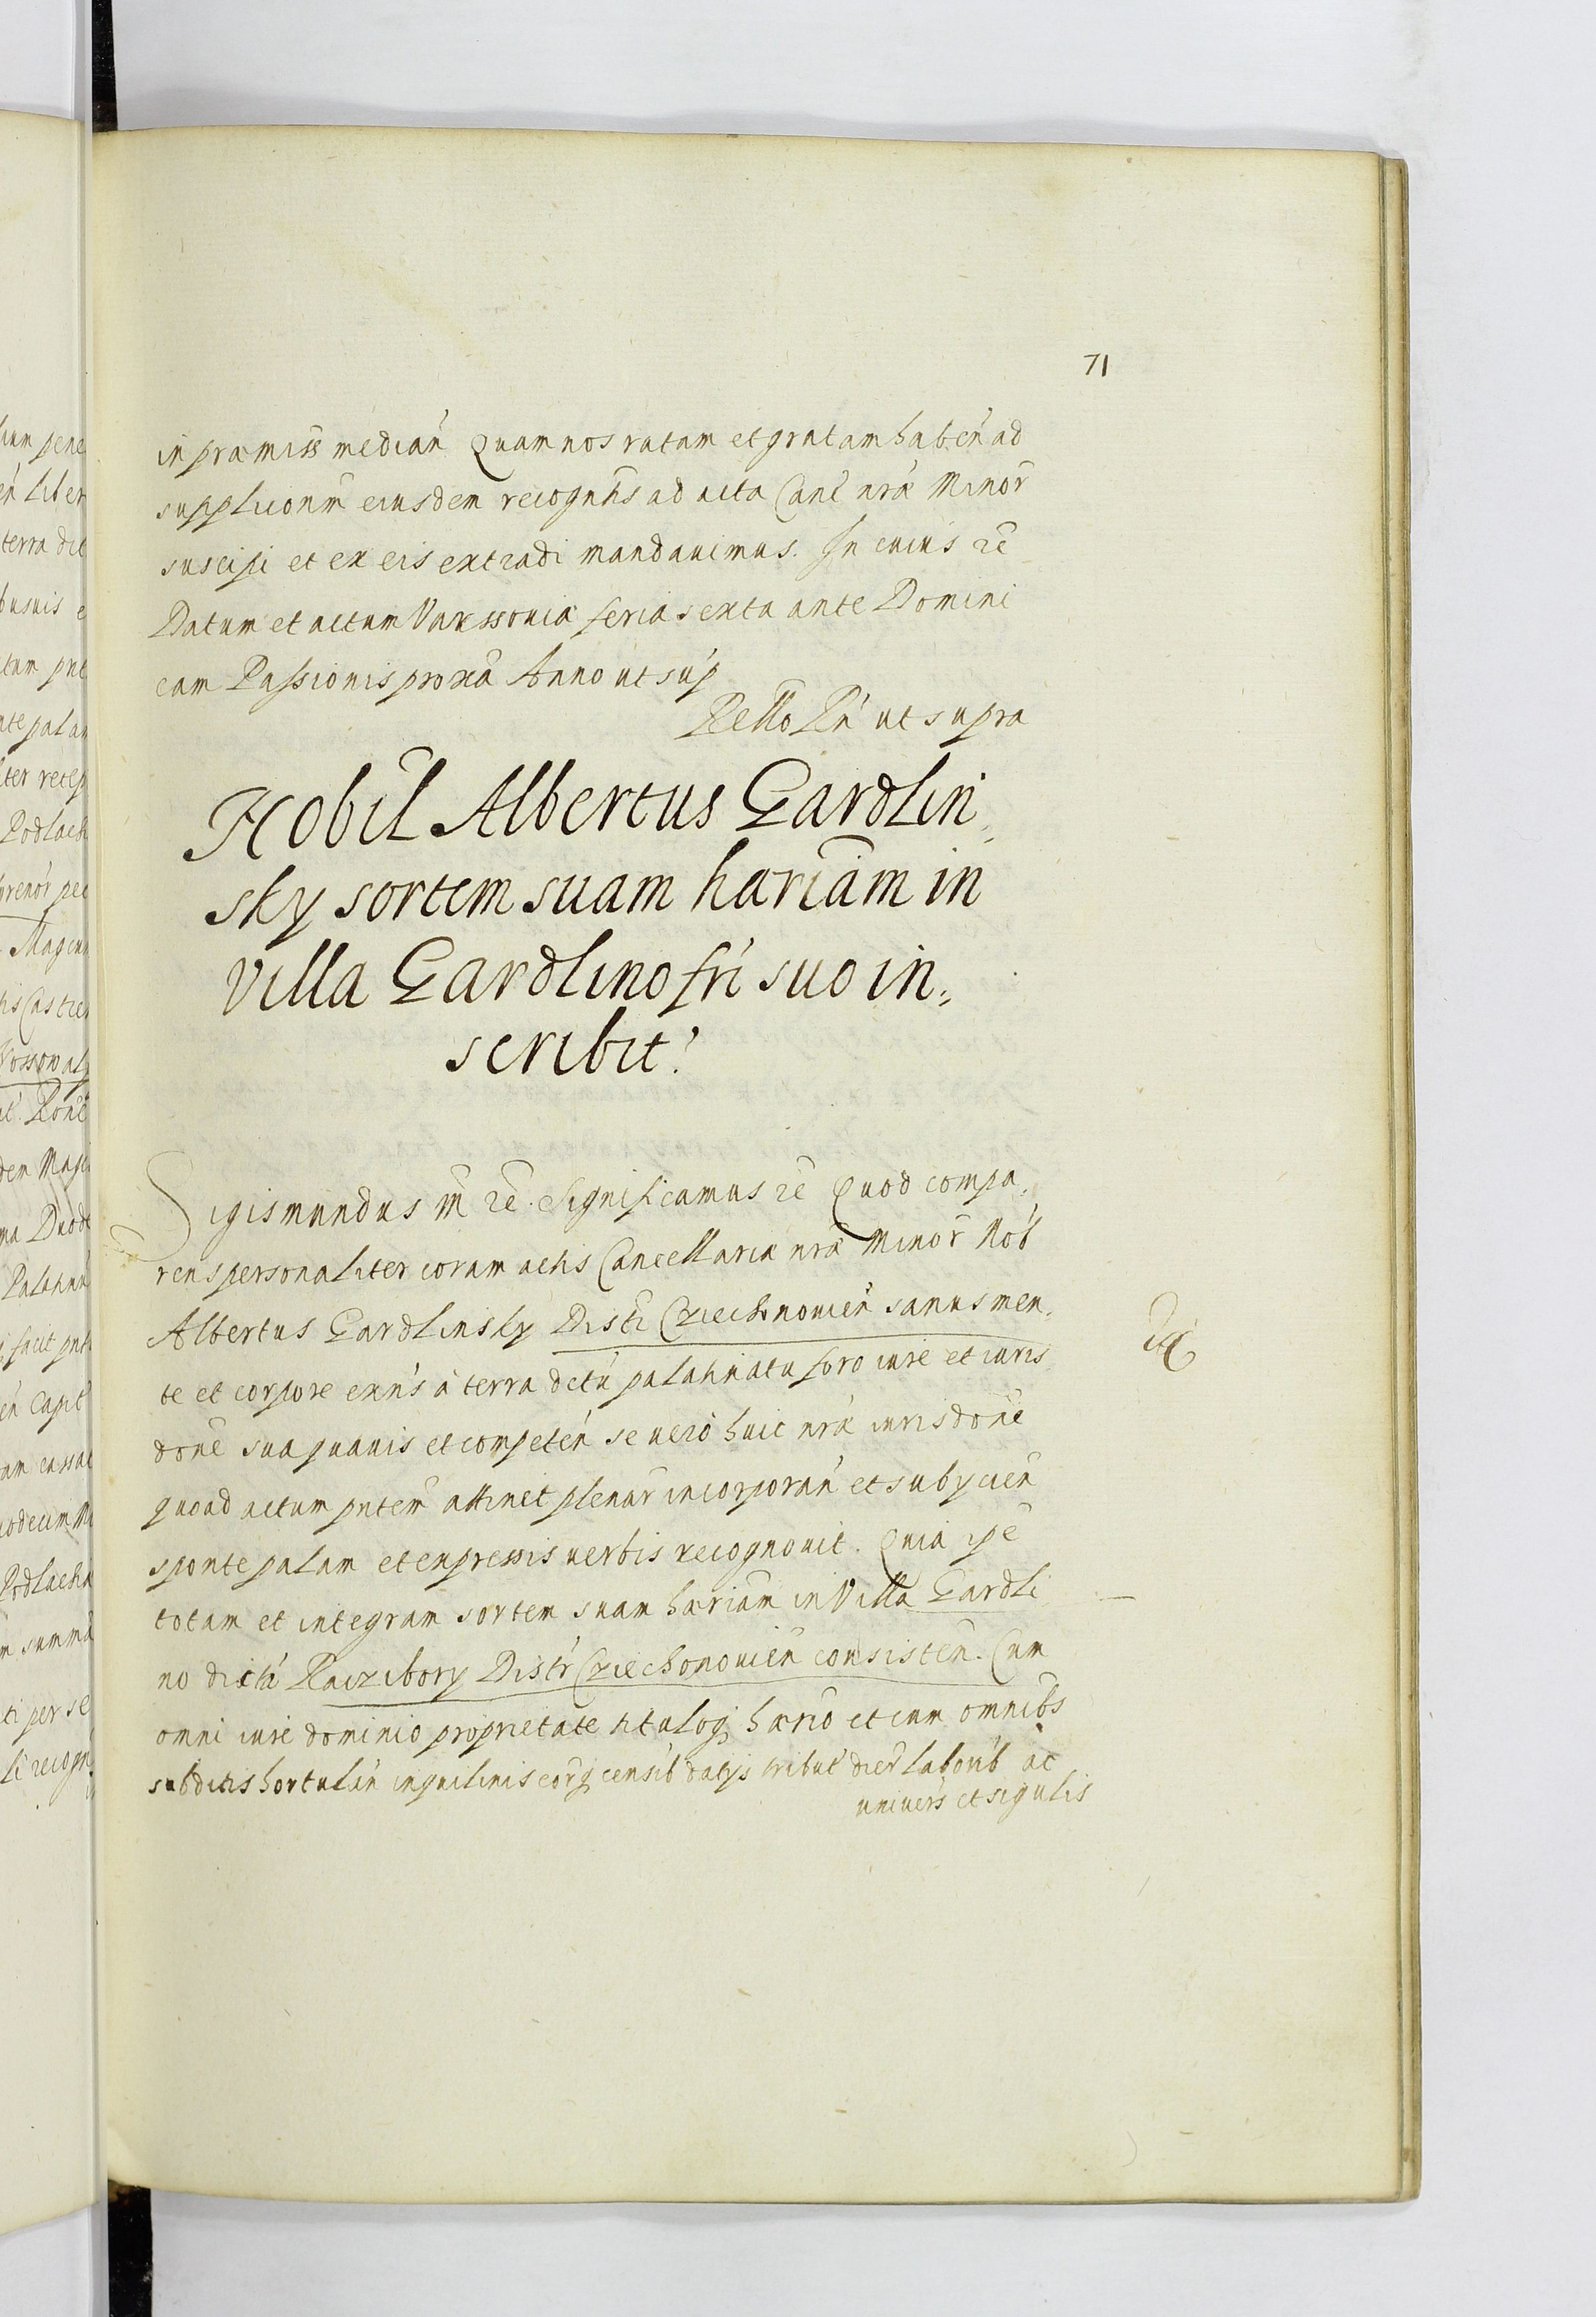 71
in præmiss median̄ Quam nos ratam et gratam haben̄ ad
supplicōnm̄ eiusdem recognn̄s ad acta Canc̄ nr̄æ Minor̄
suscipi et ex eis extradi mandauimus. In cuius rē
Datum et actum Varssouiæ feria sexta ante Domini
cam Passionis proxā Anno ut sup̄
Rello Rn̄ ut supra
Nobil Albertus Gardlin,,
sky sortem suam hæriam̄ in
Villa Gardlino fri suo in,,
scribit.
Sigismundus m̄ rē. Significamus rē Quod compa,
rens personaliter coram actis Cancellariæ nr̄æ Minor̄ Nob̄
Albertus Gardlinsky Distr̄ Cziechonouien̄ sanus men,
te et corpore exn̄s à terra dc̄tu palatinatu foro iure et iuris
done sua quauis et competen̄ se uero huic nr̄æ iurisdonē
quoad actum pn̄tem̄ attinet plenar̄ incorporan̄ et subÿcien̄
sponte palam et expressis uerbis recognouit. Quia ipē
totam et integram sortem suam hæriam̄ in Villa Gardli
no dictā Raczibory Distr̄ Cziechonouien̄ consisten̄. Cum
omni iure dominio proprietate tituloq; hærio et cum omnibs
subditis hortulan̄ inquilinis eorq; censib̄ datÿs tribut̄ dier̄ laborib̄ ac
univers̄ et sīgulis